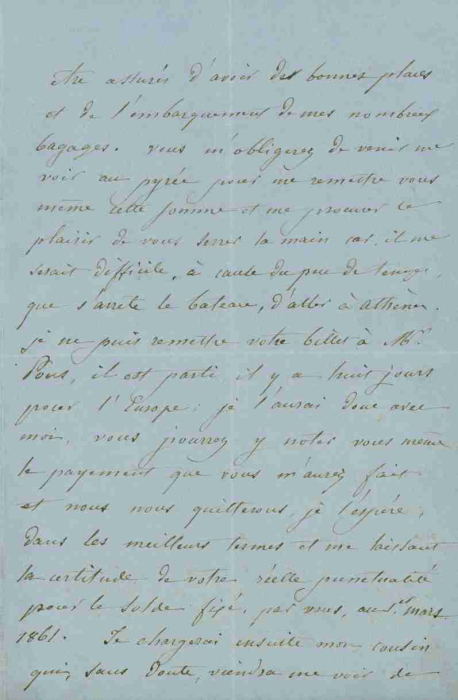 être assurés d'avoir des bonnes places
et de l'embarquement de mes nombreux
bagages. vous m'obligerez de venir me
voir au pyrée pour me remettre vous
même cette somme et me procurer le
plaisir de vous serrer la main car, il me
serait difficile, à cause du peu de temps,
que s'arrête le bateau, d'aller à athènes.
je ne puis remettre votre billet à Mr
il est parti il y a huit jours
pour l'Europe; je l'aurai donc avec
moi, vous pourrez y noter vous même
le payement que vous m'aurez fait
et nous nous quitterons, je l'espère,
dans les meilleurs termes et me laissant
la certitude de votre réelle punctualité
pour le solde fixé, par vous, au 1er mars
1861. Je chargerai ensuite mon cousin
qui, sans doute, viendra me voir de